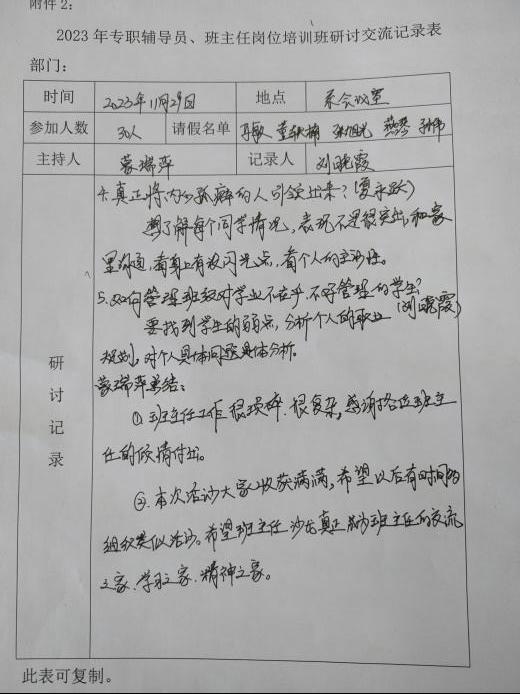 附件2：
2023年专职辅导员、班主任岗位培训班研讨交流记录表
部门：
时间 2023年11月29日 地点 系会议室
参加人数 30人 请假名单 孙伟
主持人 蒙瑞萍 记录人 刘晓霞
研讨记录
4.真正将内心孤癖的人引领出来？（夏永跃）
想了解每个同学情况，表现不是很突出，和家
里沟通，看身上有没闪光点，看个人的主动性。
5.如何管理班级对学业不在乎、不好管理的学生？
要找到学生的弱点，分析个人的职业（刘晓霞）
规划，对个人具体问题具体分析。
蒙瑞萍总结：
①班主任工作很琐碎、很复杂，感谢各位班主
任的倾情付出。
②.本次活动大家收获满满，希望以后有时间多
组织类似活动。希望班主任沙龙真正成为班主任的交流
之家、学习之家、精神之家。
此表可复制。